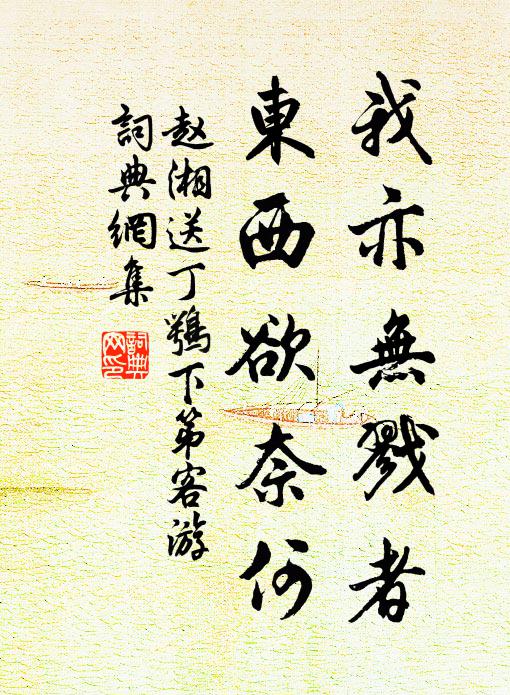 我亦無戮者
東西欲奈何
赵湘送丁鶚下第客游
詞典網集
詞典网印